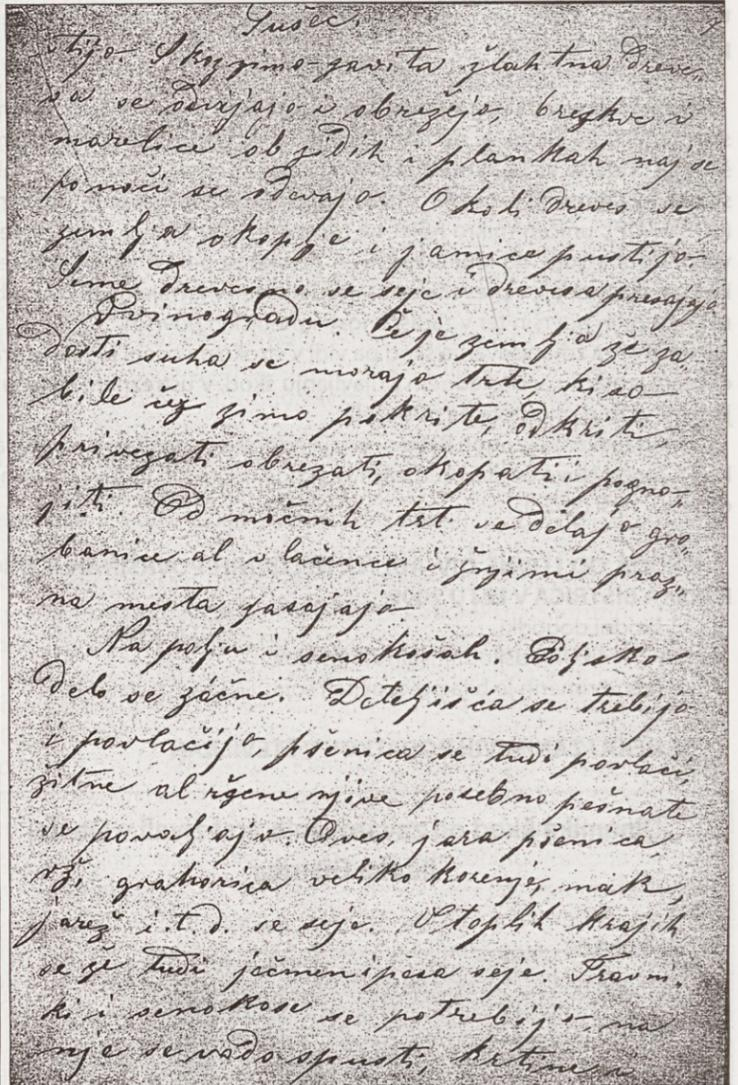 Sušec.
stijo. Skoz zimo zavita žlahtna dreve„
sa se odvijajo i obrežejo, breskve i
marelice ob zidih i plankah naj se
ponoči se odevajo. Okoli dreves se
zemlja okoplje i jamice pustijo.
Seme drevesno se seje i drevesa presajajo
V vinogradu. Če je zemlja že za„
dosti suha se morajo trte, ki so
bile čez zimo pokrite, odkriti,
privezati obrezati, okopati i pogno„
jiti. Od močnih trt se delajo gro„
banice al vlačence i žnjimi praz„
na mesta zasajajo
Na polju i senokošah. Poljsko
delo se začne. Deteljišča se trebijo
i povlačijo, pšenica se tudi povlači,
žitne al ržene njive posebno pešnate
se povaljajo. Oves, jara pšenica,
rž, grahorica veliko korenje, mak,
jarež i. t. d. se seje. V toplih krajih
se že tudi ječmen i pesa seje. Travni„
ki i senokose se potrebijo, na
nje se voda spusti, krtine i